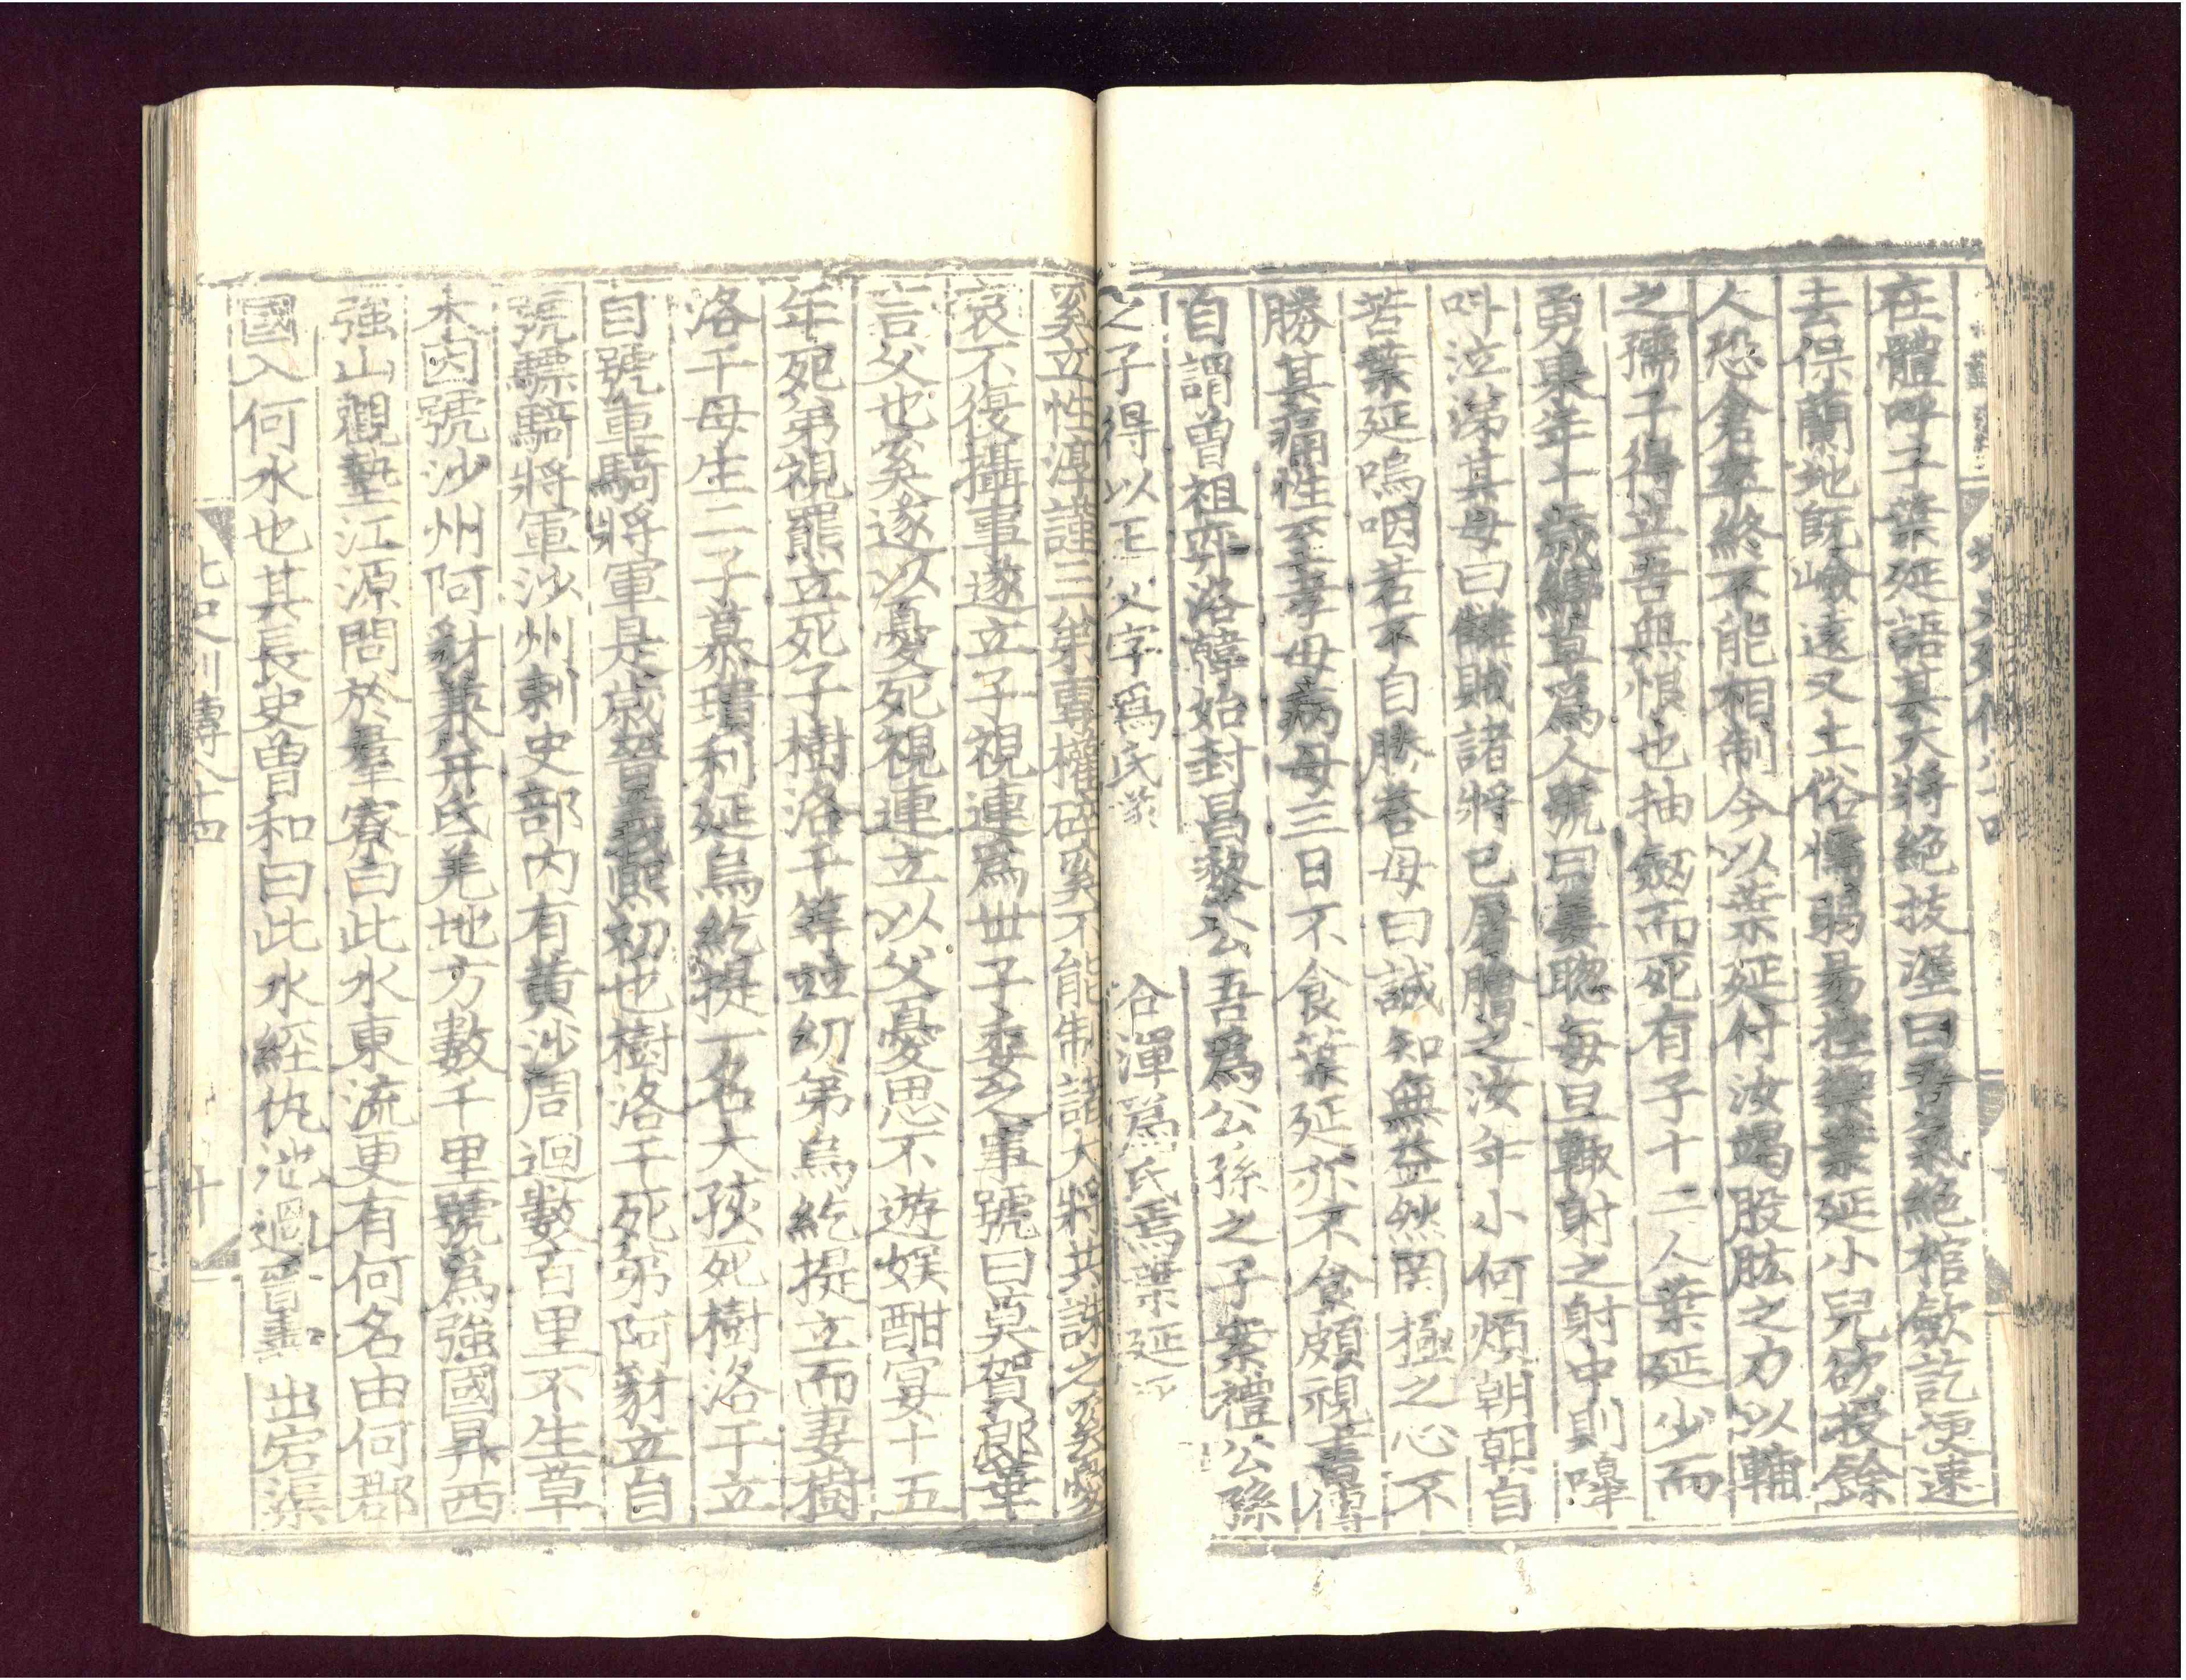 在體呼子葉延語其大將絶拔渥曰吾氣絶棺歛訖便速
去保蘭地旣嶮遠又土俗懦弱易控禦葉延小兒欲授餘
人恐倉卒終不能相制今以葉延付汝竭股肱之力以輔
之孺子得立吾無恨也抽劒而死有子十二人葉延少而
勇果年十歲縛草爲人號曰姜聦每旦輙射之射中則嘷
叫泣涕其母曰讎賊諸將已屠膾之汝年小何煩朝朝自
苦葉延嗚咽若不自勝荅母曰誠知無益然罔極之心不
勝其痛性至孝母病母三日不食葉延亦不食頗視書傳
自謂曾祖弈洛韓始封昌黎公吾爲公孫之子案禮公孫
之子得以王父字爲氏 谷渾爲氏焉葉延
奚立性淳謹三弟專權碎奚不能制諸大將共誅之奚憂
哀不復攝事遂立子視連爲世子委之事號曰莫賀郎華
言父也奚遂以憂死視連立以父憂思不遊娛酣宴十五
年死弟視羆立死子樹洛干等並幼弟烏紇提立而妻樹
洛干母生二子慕璝利延烏紇提一名大孩死樹洛干立
自號車騎將軍是歲晉義熙初也樹洛干死弟阿豺立自
號驃騎將軍沙州刺史部內有黃沙周迴數百里不生草
木因號沙州阿豺兼并氐羌地方數千里號爲強國昇西
強山觀墊江源問於羣寮曰此水東流更有何名由何郡
國入何水也其長史曾和曰此水經仇池過晋壽出宕渠
北史列傳八十四
十